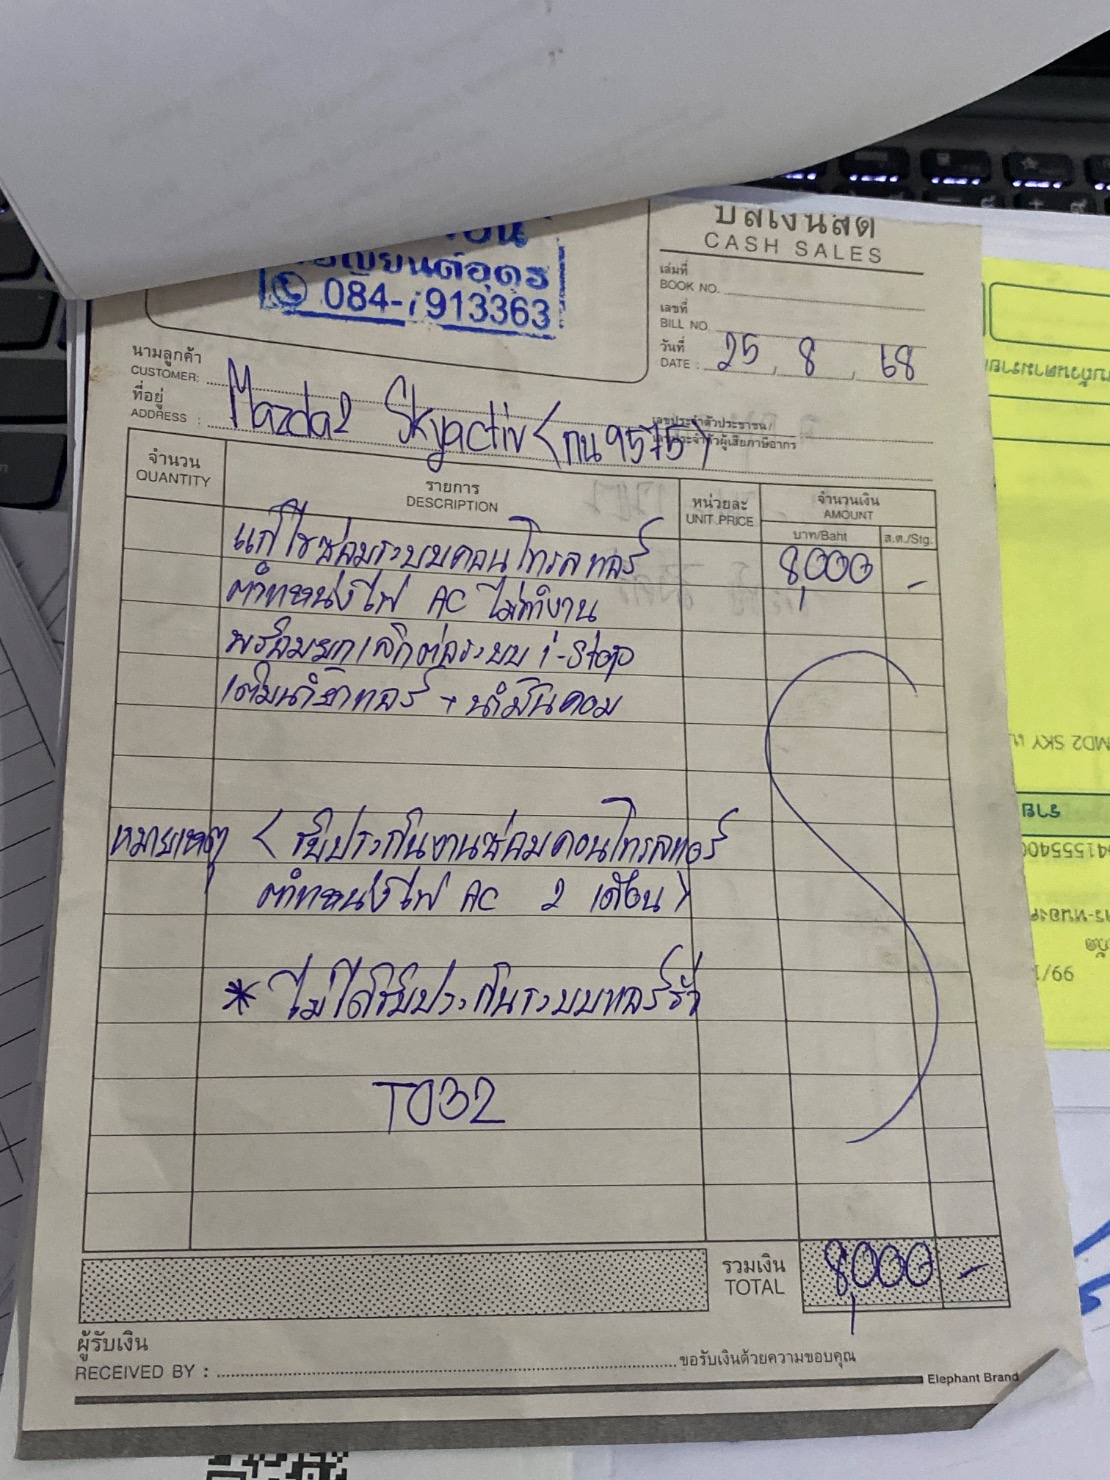 บิลเงินสด
CASH SALES
ยนต์อุดร
084-7913363
เล่มที่
BOOK NO.
เลขที่
BILL NO.
วันที่
DATE : 25, 8, 68
นามลูกค้า
CUSTOMER:
ที่อยู่
ADDRESS :
Mazda2 Skyactiv (กน9575)
เลขประจำตัวประชาชน/
เลขประจำตัวผู้เสียภาษีอากร
จำนวน
QUANTITY
รายการ
DESCRIPTION
หน่วยละ
UNIT PRICE
จำนวนเงิน
AMOUNT
บาท/Baht
ส.ต./Stg.
แก้ไขซ่อมระบบคอนโทรลแอร์ 8,000 -
ตำแหน่งไฟ AC ไม่ทำงาน
พร้อมยกเลิกต่อระบบ i-stop
เติมน้ำยาแอร์ + น้ำมันคอม
หมายเหตุ < รับประกันงานซ่อมคอนโทรลแอร์
ตำแหน่งไฟ AC 2 เดือน >
* ไม่ได้รับประกันระบบแอร์รั่ว
T032
รวมเงิน
TOTAL
8,000 -
ผู้รับเงิน
RECEIVED BY :
ขอรับเงินด้วยความขอบคุณ
Elephant Brand
MD2 SKY
99/1